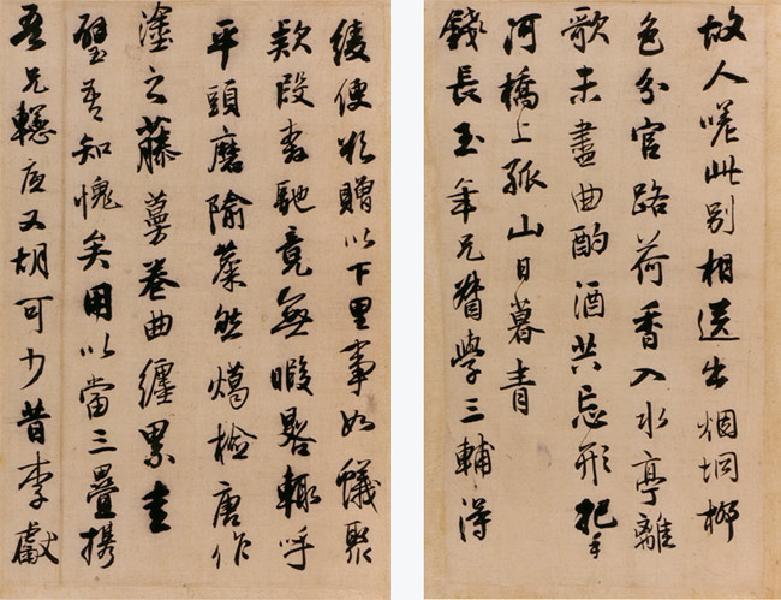 故人嗟此別相送出烟坰柳
色分官路荷香入水亭離
歌未盡曲酌酒共忘形把手
河橋上孤山日暮青
錢長玉年兄督學三輔得
綾便於贈以下里事如蟻聚
款段馳竟無暇晷輒呼
平頭磨隃糜然燭檢唐作
塗之藤蔓卷曲纏累圭
璧吾知愧矣用以當三疊攜
吾兄轅應又胡可少昔李獻